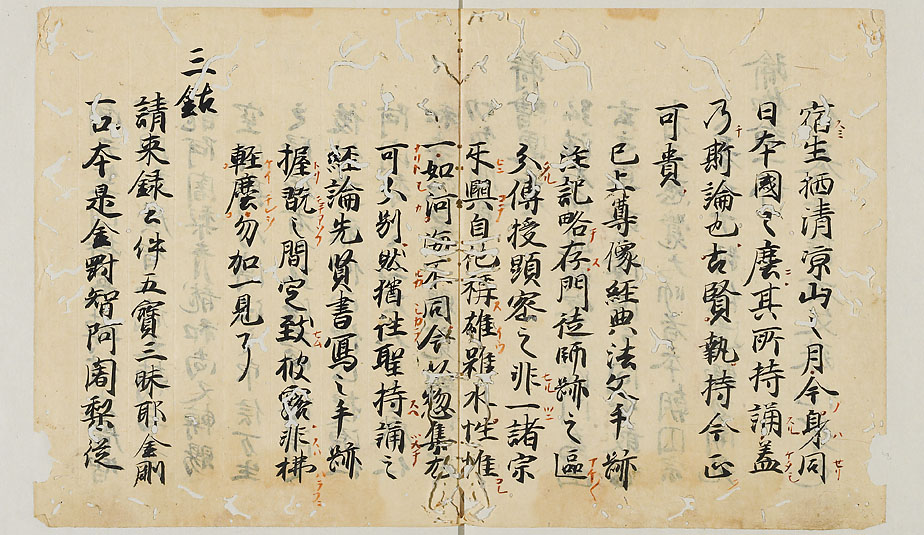 宿生栖清涼山之月今身同
日本國之塵其所持誦蓋
乃斯論也古賢執持今正
可貴
已上尊像経典法文手跡
注記略存門徒師跡之區
又傳授顕密之非一諸宗
興自他稱雄雖水性惟
一如河海不同今以惣集
可以別然猶往聖持誦之
経論先賢書寫之手跡
握翫之間定致披露非拂
軽塵勿加一見了
三鈷
請来録云件五寳三昧耶金剛
一口本是金剛智阿闍梨従